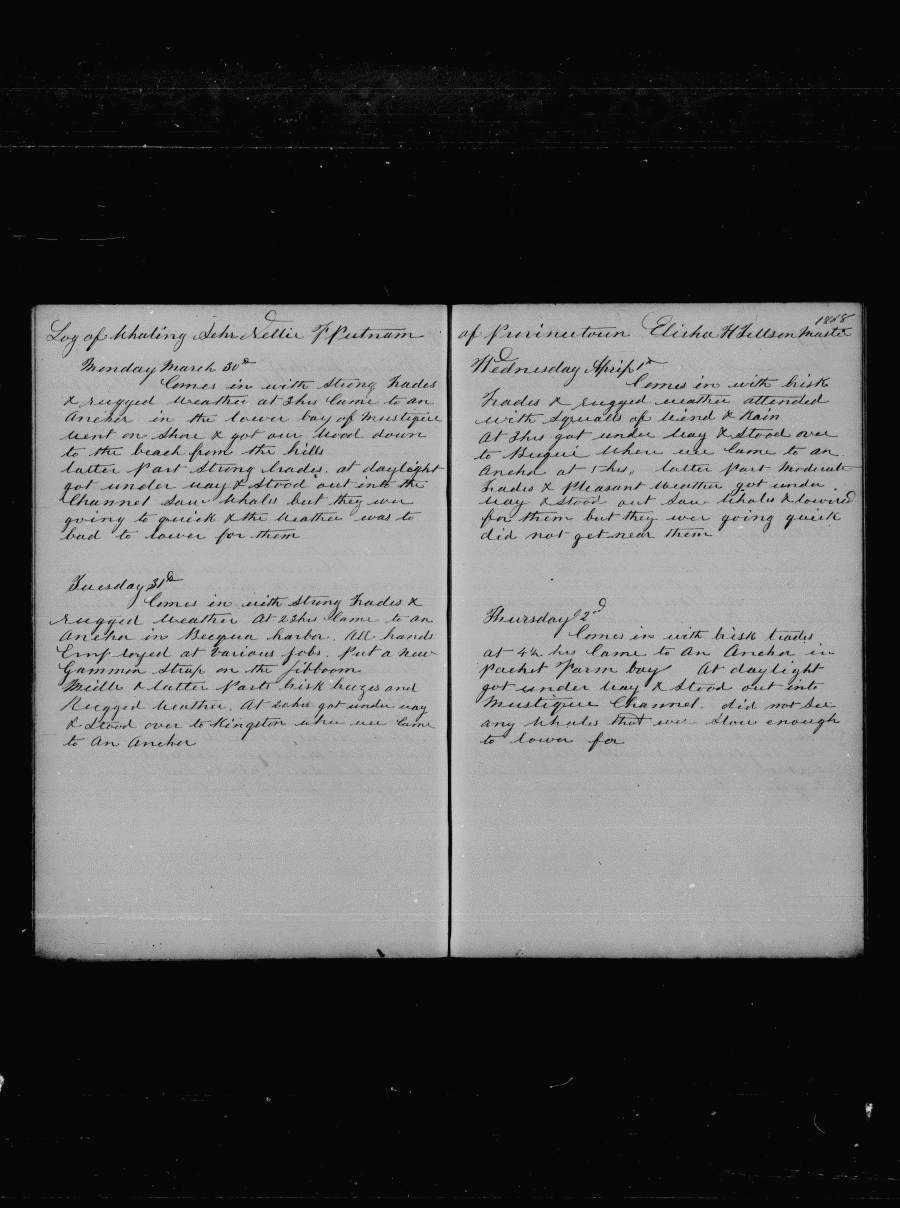 Log of Whaling Schr Nellie F Putnam
Monday March 30th
Comes in with Strong trades
& rugged weather at 3hrs Came to an
Anchor in the lower bay of Mustique
went on Shore & got our wood down
to the beach from the hills
latter part Strong trades. at daylight
got under way & Stood out into the
Channel Saw Whales but they wer
going to quick & the weather was to
bad to lower for them
Tuesday 31st
Comes in with Strong trades &
rugged weather At 22hrs Came to an
Anchor in Becqua harbor. All hands
Employed at various jobs. Put a new
Gammon Strap on the jibboom
Midle & latter Parts brisk breezes and
Rugged weather. At 20hrs got under way
& Stood over to Kingston when we Came
to An Anchor
of Provincetown Elisha H Tillson Master
1868
Wednesday April 1st
Comes in with brisk
trades & rugged weather attended
with Squalls of Wind & Rain
At 3hrs got under way & Stood over
to Bequi Where we Came to an
Anchor at 5 hrs. latter Part Moderate
trades & Pleasant weather got under
way & Stood out Saw Whales & lowered
for them but they wer going quick
did not get near them
Thursday 2nd
Comes in with brisk trades
at 4½ hrs Came to An Anchor in
Packet Farm bay At daylight
got under way & Stood out into
Mustique Channel. did not See
any Whales that wer Slow enough
to lower for